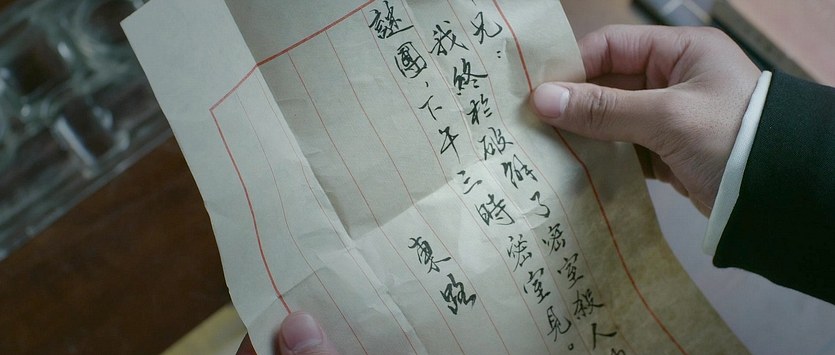 兄：
我終於破解了密室殺人
謎團，下午三時密室見。
東路